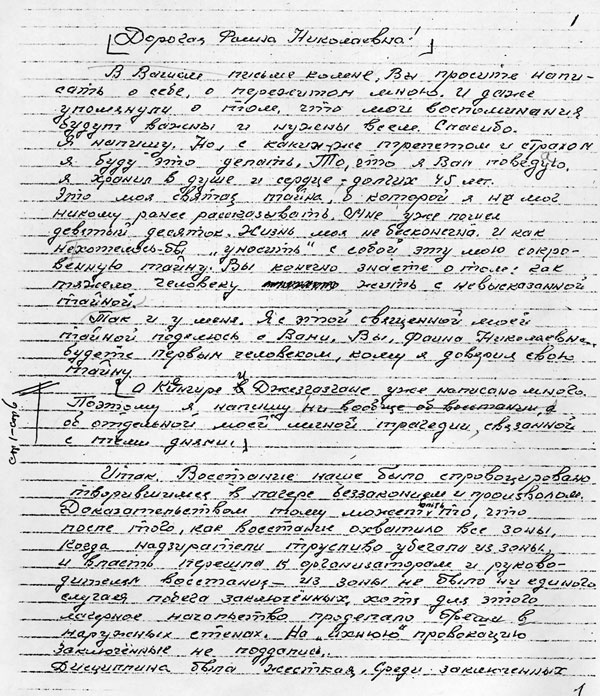 1
[Дорогая Фаина Николаевна!]
В Вашем письме ко мне, Вы просите напи-
сать о себе, о пережитом мною. И даже
упомянули о том, что мои воспоминания
будут важны и нужны всем. Спасибо.
Я напишу. Но, с каким же трепетом и страхом
я буду это делать. То, что я Вам поведую,
я хранил в душе и сердце – долгих 45 лет.
Это моя святая тайна, о которой я не мог
никому ранее рассказывать. Мне уже пошел
девятый десяток. Жизнь моя не бесконечна. И как
нехотелось-бы, "уносить" с собой эту мою сокро-
венную тайну. Вы конечно знаете о том: как
тяжело человеку жить с невысказанной
тайной.
Так и у меня. Я с этой священной моей
тайной поделюсь с Вами. Вы, Фаина Николаевна
будете первым человеком, кому я доверил свою
тайну.
[О Кингире и Джезгазгане уже написано много.
Поэтому я напишу ни вообще об восстании, а
об отдельной моей личной трагедии, связанной
с теми днями.]
стр 1-стр 6
Итак. Восстание наше было спровоцировано
творившимся в лагере беззаконием и произволом.
Доказательством тому может быть то, что
после того, как восстание охватило все зоны,
когда надзиратели трусливо убегали из зоны,
и власть перешла к организаторам и руково-
дителям восстания – из зоны не было ни единого
случая побега заключенных, хотя для этого
лагерное начальство проделало бреши в
наружных стенах. На "ихнюю" провокацию
заключённые не поддались.
Дисциплина была жесткая. Среди заключенных
1